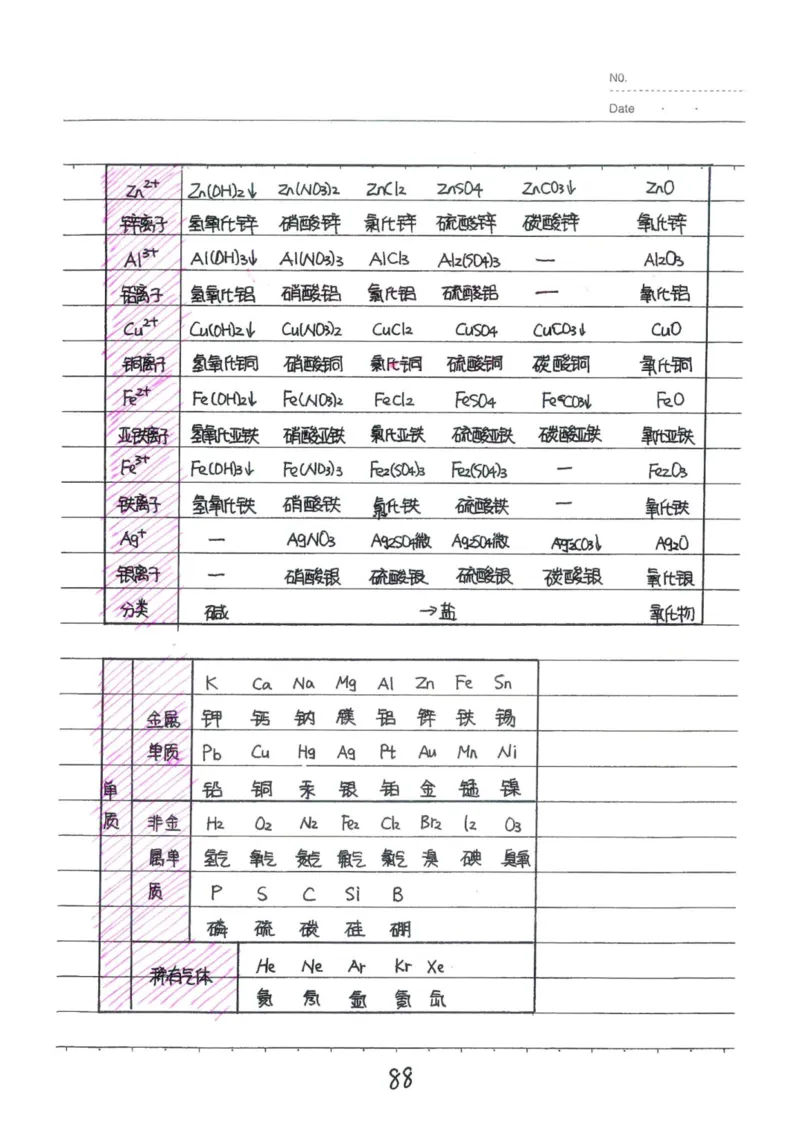 NO.
Date
Zn²⁺ Zn(OH)₂↓ Zn(NO₃)₂ ZnCl₂ ZnSO₄ ZnCO₃↓ ZnO
锌离子 氢氧化锌 硝酸锌 氯化锌 硫酸锌 碳酸锌 氧化锌
Al³⁺ Al(OH)₃↓ Al(NO₃)₃ AlCl₃ Al₂(SO₄)₃ — Al₂O₃
铝离子 氢氧化铝 硝酸铝 氯化铝 硫酸铝 — 氧化铝
Cu²⁺ Cu(OH)₂↓ Cu(NO₃)₂ CuCl₂ CuSO₄ CuCO₃↓ CuO
铜离子 氢氧化铜 硝酸铜 氯化铜 硫酸铜 碳酸铜 氧化铜
Fe²⁺ Fe(OH)₂↓ Fe(NO₃)₂ FeCl₂ FeSO₄ FeCO₃↓ FeO
亚铁离子 氢氧化亚铁 硝酸亚铁 氯化亚铁 硫酸亚铁 碳酸亚铁 氧化亚铁
Fe³⁺ Fe(OH)₃↓ Fe(NO₃)₃ Fe₂(SO₄)₃ Fe₂(SO₄)₃ — Fe₂O₃
铁离子 氢氧化铁 硝酸铁 氯化铁 硫酸铁 — 氧化铁
Ag⁺ — AgNO₃ Ag₂SO₄微 Ag₂SO₄微 Ag₂CO₃↓ Ag₂O
银离子 — 硝酸银 硫酸银 硫酸银 碳酸银 氧化银
分类 碱 →盐 氧化物
K Ca Na Mg Al Zn Fe Sn
金属 钾 钙 钠 镁 铝 锌 铁 锡
单质 Pb Cu Hg Ag Pt Au Mn Ni
单 铅 铜 汞 银 铂 金 锰 镍
质 非金 H₂ O₂ N₂ Fe₂ Cl₂ Br₂ I₂ O₃
属单 氢气 氧气 氮气 氟气 氯气 溴 碘 臭氧
质 P S C Si B
磷 硫 碳 硅 硼
稀有气体 He Ne Ar Kr Xe
氦 氖 氩 氪 氙
88